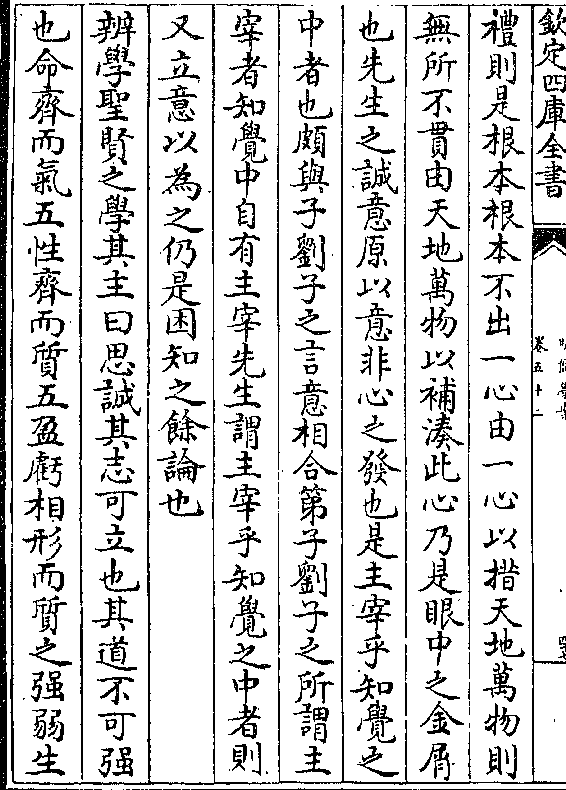 欽定四庫全書
卷五十二
禮則是根本根本不出一心由一心以措天地萬物則
無所不貫由天地萬物以補湊此心乃是眼中之金屑
也先生之誠意原以意非心之發也是主宰乎知覺之
中者也頗與子劉子之言意相合第子劉子之所謂主
宰者知覺中自有主宰先生謂主宰乎知覺之中者則
又立意以為之仍是困知之餘論也
辨學聖賢之學其主曰思誠其志可立也其道不可强
也命齊而氣五性齊而質五盈虧相形而質之强弱生